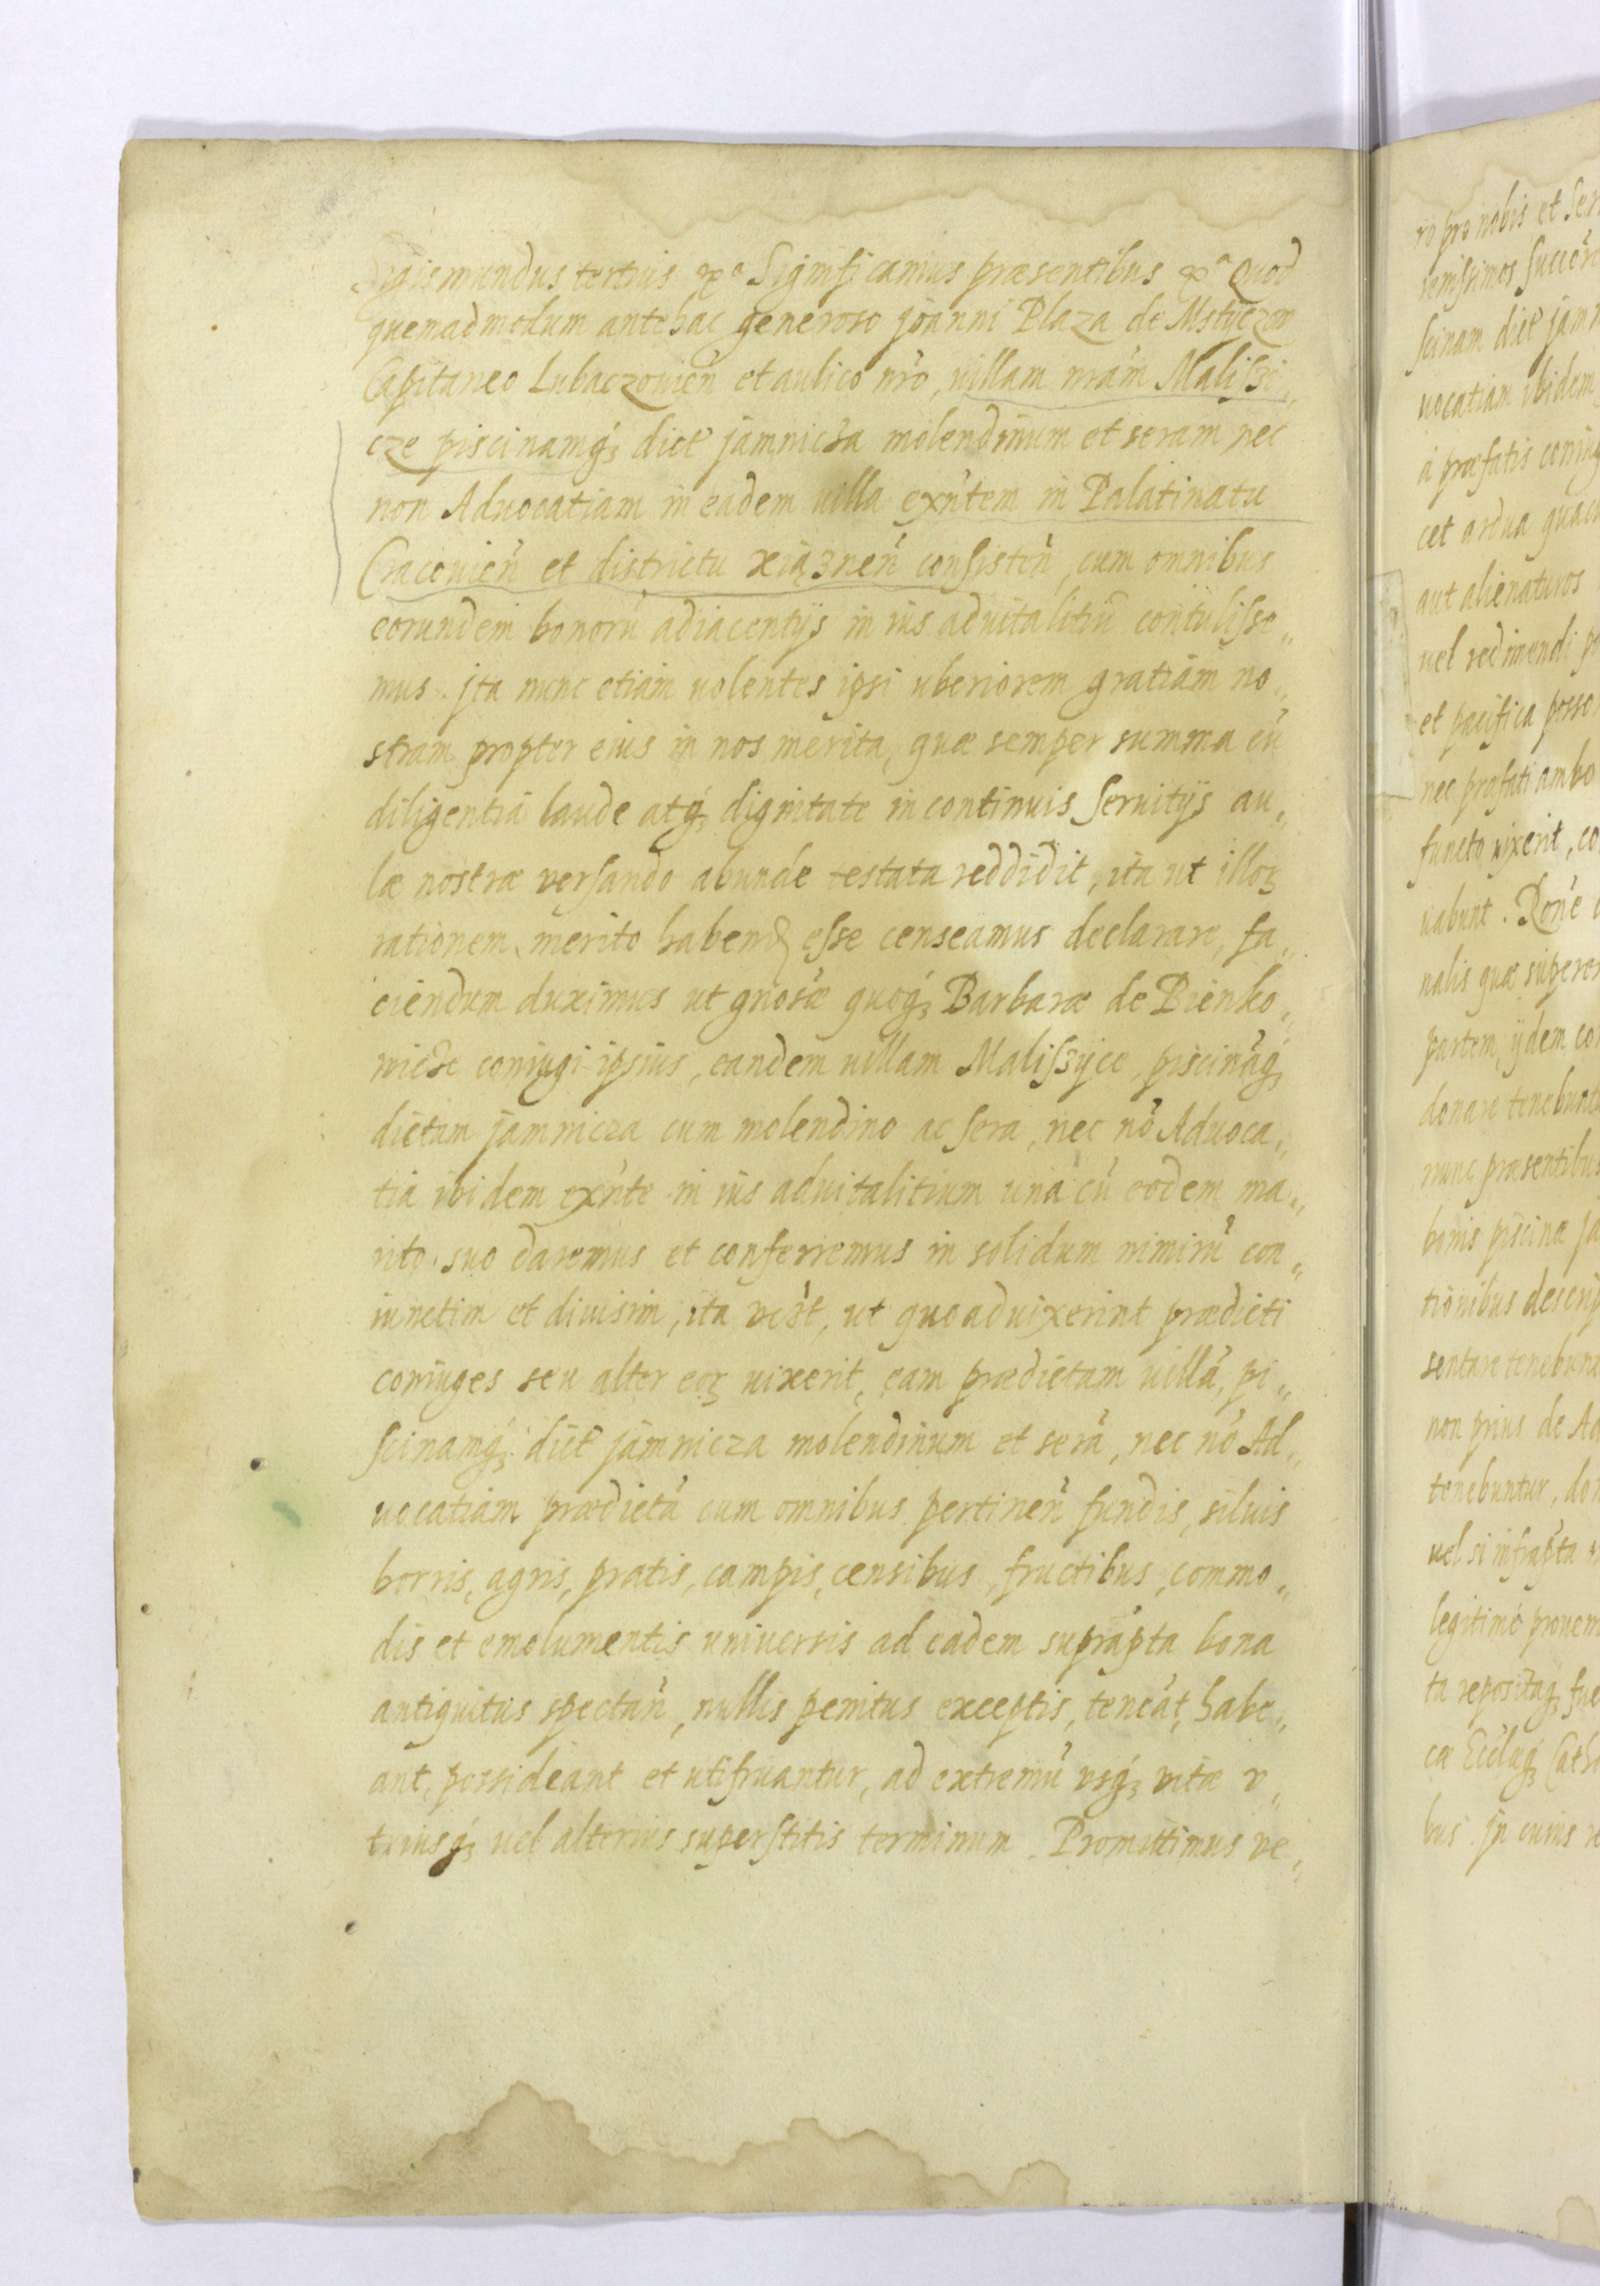 Sigismundus tertius &c^a Significamus præsentibus &c^a Quod
quenadmodum antehac generoso joanni Plaza de Mstyczow
Capitaneo Lubaczouien̄ et aulico nr̄o, uillam nr̄am Malißi„
cze piscinamq́ꝫ dict̄ jamnicza molendinum et seram nec
non Aduocatiam in eadem uilla exn̄tem in Palatinatu
Cracouien̄ et districtu xiąznen̄ consisten̄, cum omnibus
eorundem bonorū adiacentijs in ius aduitalitiū contulisse„
mus. jta nunc etiam uolentes ipsi uberiorem gratiam no„
stram propter eius in nos merita, quæ semper summa cū
diligentia laude atq́ꝫ dignitate in continuis seruitijs au„
læ nostræ versando abunde testata reddidit, ita ut illoꝝ
rationem merito habend esse censeamus declarare, fa„
ciendum duximus ut gnosæ quoq́ꝫ Barbaræ de Bienko„
wicze coniugi ipsius, eandem uillam Malißÿce, piscināqꝫ
dictam jamnicza cum molendino ac sera, nec nō Aduoca„
tia ibidem exn̄te in ius aduitalitium unā cū eodem ma„
rito suo daremus et conferremus in solidum nimirū con„
iunctim et diuisim, ita vt, ut quoaduixerint prædicti
coniuges seu alter eoꝝ uixerit, eam prædictam uillā, pi„
scinamq́ꝫ dict̄ jamnicza molendinum et serā, nec nō Ad„
uocatiam prædictā cum omnibus pertinen̄ fundis, siluis
borris, agris, pratis, campis, censibus, fructibus, commo„
dis et emolumentis uniuersis ad eadem suprapta bona
antiquitus spectan̄, nullis penitus exceptis, teneāt, habe„
ant, possideant et utifruantur, ad extremū vsq́ꝫ vitæ v„
triusq́ꝫ uel alterius superstitis terminum. Promittimus ve„
ro pro nobis et Ser
renissimos succor
scinam dict̄ jamn
uocatiam ibidem
a præfatis coniug
cet ardua quacu
aut alienaturos
uel redimendi po
et pacifica posse
nec præfati ambo
functo uixerit, co
uabunt. Ron̄e
nalis quæ superer
partem, ijdem con
donare tenebunt
nunc præsentibus
bonis piscinæ ja
tionibus descrip
sentare tenebunt
non prius de Ad
tenebuntur, don
uel si infrapta
legitime prouen
ta repositaqꝫ fue
cæ Eccl̄iæq́ꝫ Cath
bus. jn cuius re